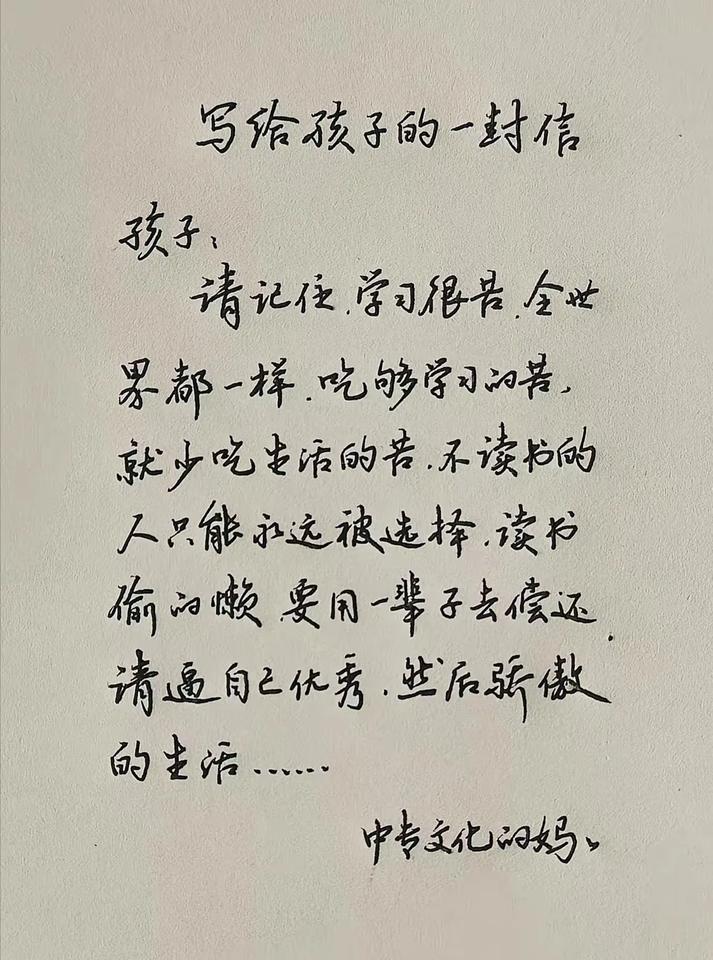 写给孩子的一封信
孩子：
请记住，学习很苦，全世
界都一样，吃够学习的苦，
就少吃生活的苦，不读书的
人只能永远被选择，读书
偷的懒，要用一辈子去偿还，
请逼自己优秀，然后骄傲
的生活……
中专文化的妈妈